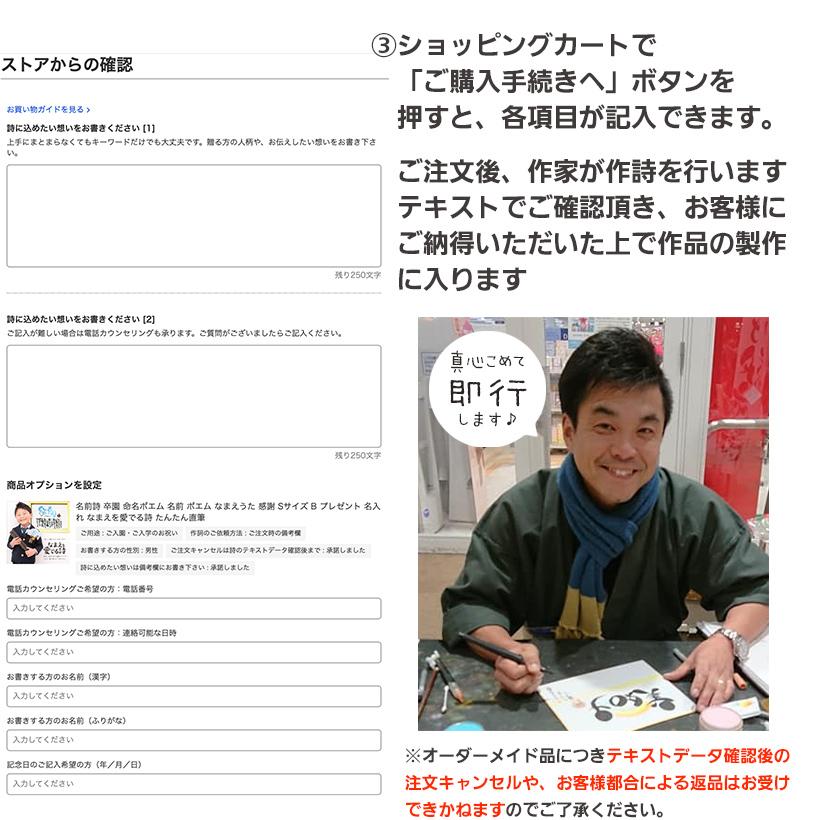 ストアからの確認
お買い物ガイドを見る ›
詩に込めたい想いをお書きください [1]
上手にまとまらなくてもキーワードだけでも大丈夫です。贈る方の人柄や、お伝えしたい想いをお書き下さ
い。
残り250文字
詩に込めたい想いをお書きください [2]
ご記入が難しい場合は電話カウンセリングも承ります。ご質問がございましたらご記入ください。
残り250文字
商品オプションを設定
名前詩 卒園 命名ポエム 名前 ポエム なまえうた 感謝 Sサイズ B プレゼント 名入
れ なまえを愛でる詩 たんたん直筆
ご用途 : ご入園・ご入学のお祝い 作詞のご依頼方法 : ご注文時の備考欄
お書きする方の性別 : 男性 ご注文キャンセルは詩のテキストデータ確認後まで : 承諾しました
詩に込めたい想いは備考欄にお書き下さい : 承諾しました
電話カウンセリングご希望の方：電話番号
入力してください
電話カウンセリングご希望の方：連絡可能な日時
入力してください
お書きする方のお名前（漢字）
入力してください
お書きする方のお名前（ふりがな）
入力してください
記念日のご記入希望の方（年／月／日）
入力してください
③ショッピングカートで
「ご購入手続きへ」ボタンを
押すと、各項目が記入できます。
ご注文後、作家が作詩を行います
テキストでご確認頂き、お客様に
ご納得いただいた上で作品の製作
に入ります
真心こめて
即行
します♪
※オーダーメイド品につきテキストデータ確認後の
注文キャンセルや、お客様都合による返品はお受け
できかねますのでご了承ください。